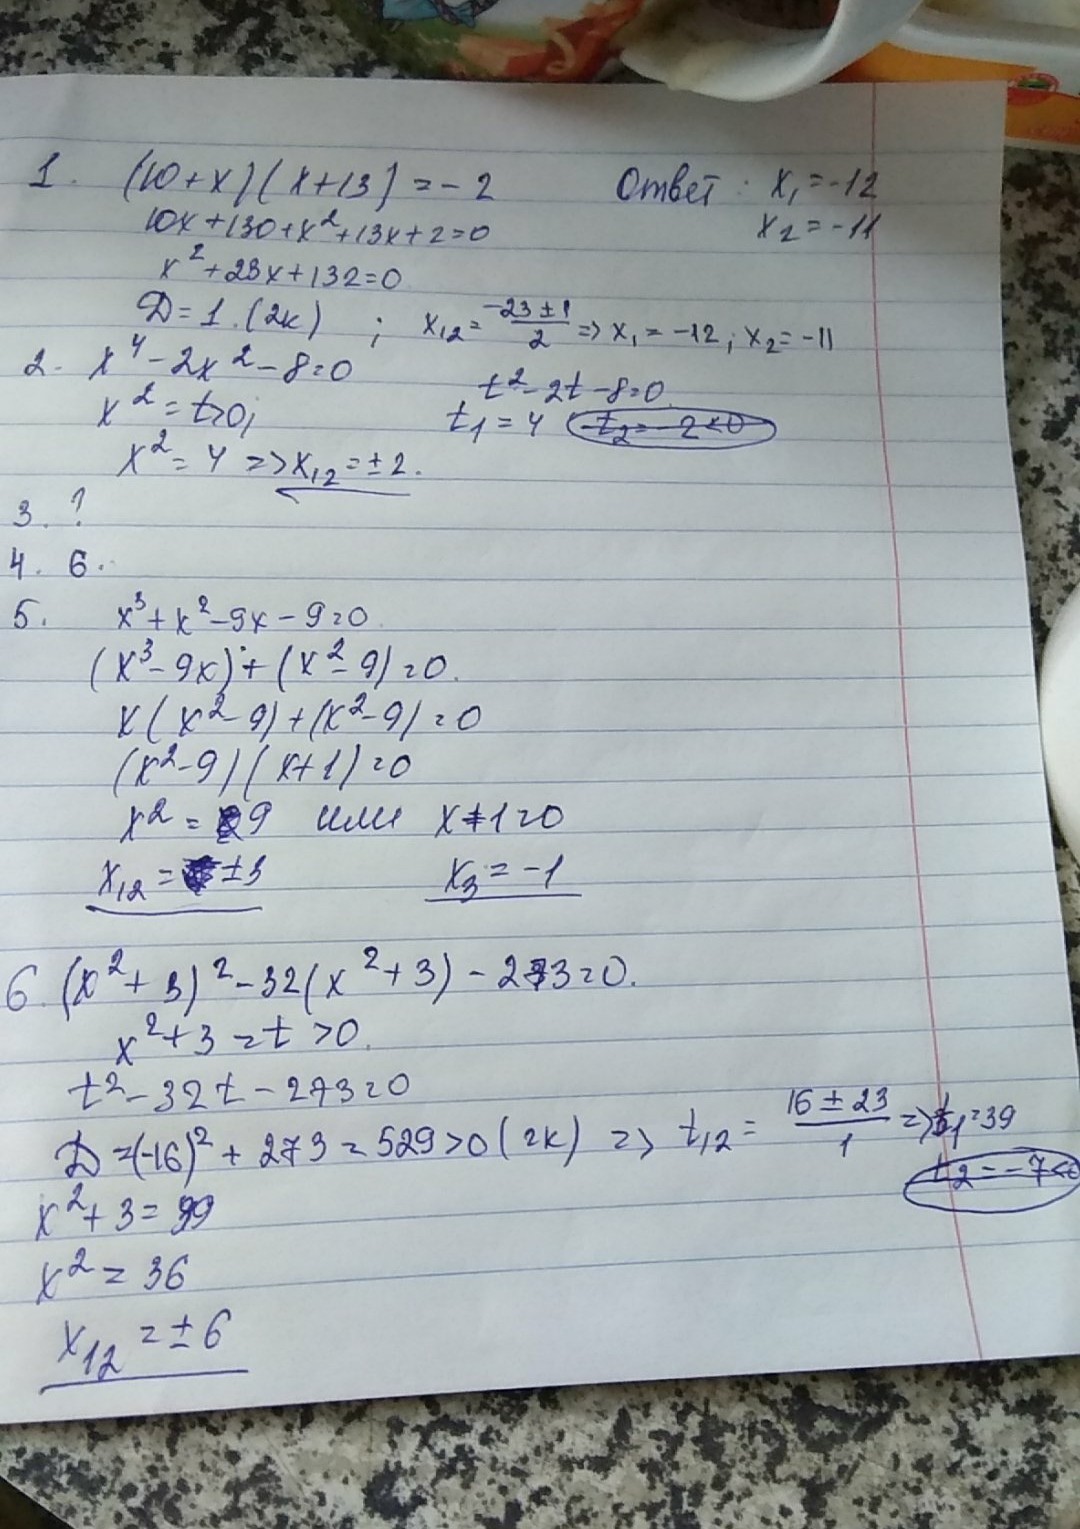 1. (10+x)(x+13)=-2 Ответ: x₁=-12
10x+130+x²+13x+2=0 x₂=-11
x²+23x+132=0
D=1. (2к) ; x₁₂= (-23±1)/2 => x₁=-12; x₂=-11
2. x⁴-2x²-8=0 t²-2t-8=0.
x²=t>0; t₁=4 t₂=-2<0
x²=4 => x₁₂=±2.
3. ?
4. 6.
5. x³+x²-9x-9=0
(x³-9x)+(x²-9)=0.
x(x²-9)+(x²-9)=0
(x²-9)(x+1)=0
x²=9 или x+1=0
x₁₂=±3 x₃=-1
6. (x²+3)²-32(x²+3)-273=0.
x²+3=t>0.
t²-32t-273=0
D=(-16)²+273=529>0(2к) => t₁₂= (16±23)/1 => t₁=39
t₂=-7<0
x²+3=39
x²=36
x₁₂=±6